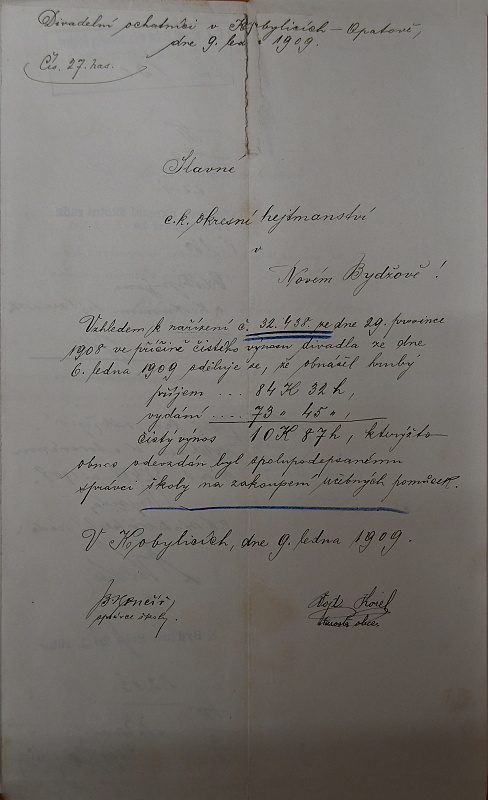 Divadelní ochotníci v Kobylicích – Opatově,
dne 9. led 1909.
Čís. 27. has.
Slavné
c.k. okresní hejtmanství
v
Novém Bydžově!
Vzhledem k nařízení č. 32.438. ze dne 29. prosince
1908 ve příčině čistého výnosu divadla ze dne
6. ledna 1909 sděluje se, že obnášel hrubý
příjem ... 84 K 32 h,
vydání .... 73 " 45 ",
čistý výnos 10 K 87 h, kterýžto
obnos odevzdán byl spolupodepsanému
správci školy na zakoupení učebných pomůcek.
V Kobylicích, dne 9. ledna 1909.
správce školy.
starosta obce